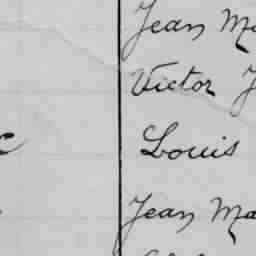 Jean Ma
Victor J
Louis
Jean Ma